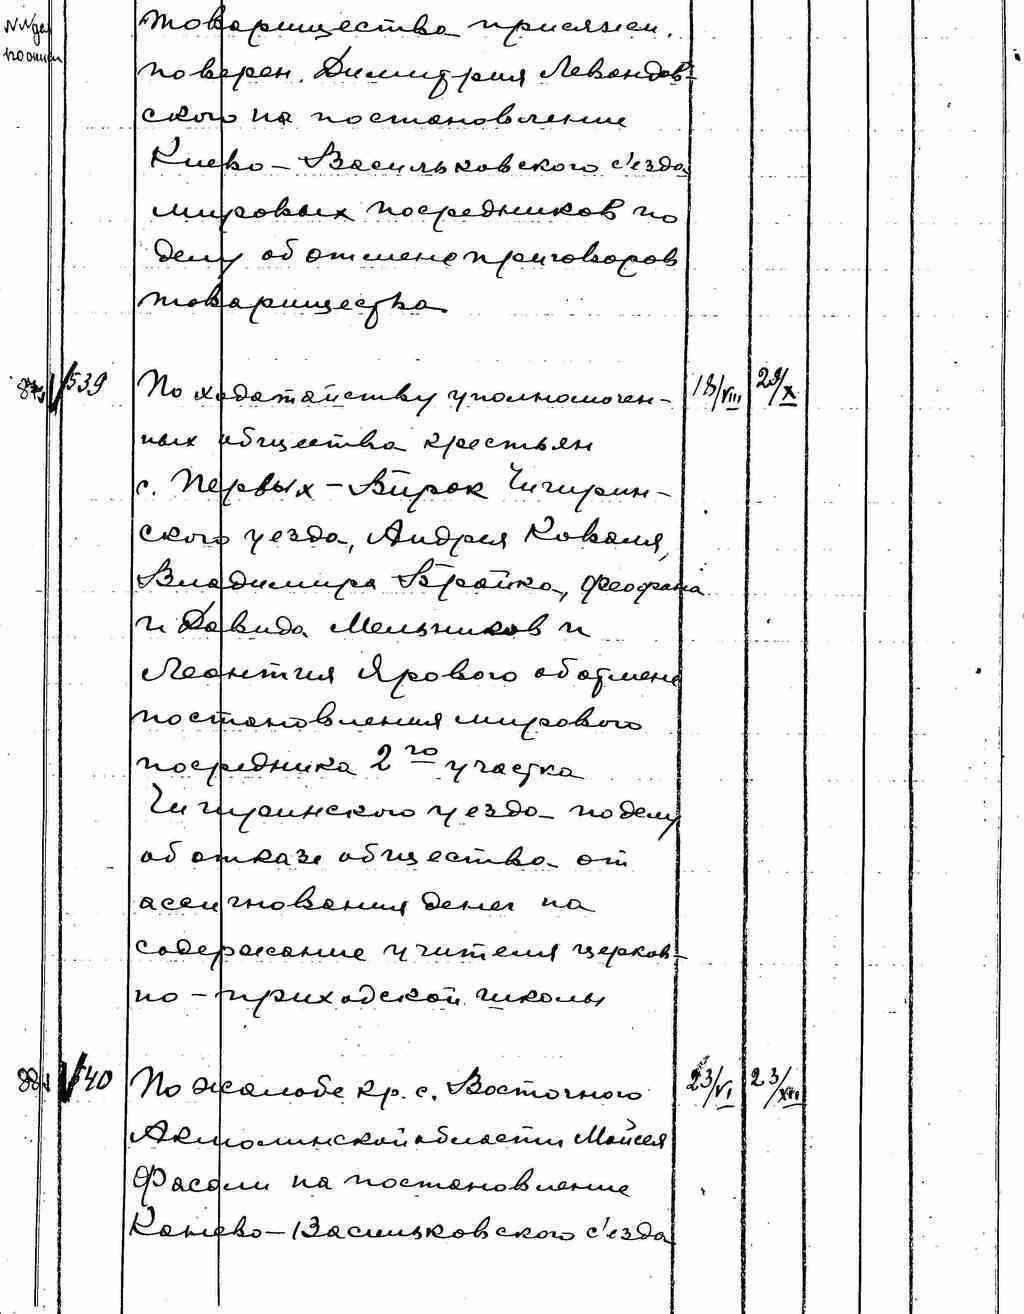 товарищества присяжн.
поверен. Димитрия Левандов-
ского на постановление
Киево-Васильковского с'езда
мировых посредников по
делу об отмене приговоров
товарищества
539 По ходатайству уполномочен- 18/VIII 29/X
ных общества крестьян
с. Первых-Бирок Чигирин-
ского уезда, Андрея Коваля,
Владимира Брайко, Феофана
и Давида Мельников и
Леонтия Ярового об отмене
постановления мирового
посредника 2го участка
Чигиринского уезда по делу
об отказе общества от
ассигнования денег на
содержание учителя церков-
но-приходской школы
540 По жалобе кр. с. Восточного 23/VI 23/XII
Акмолинской области Мойсея
Фасоли на постановление
Канево-Васильковского с'езда